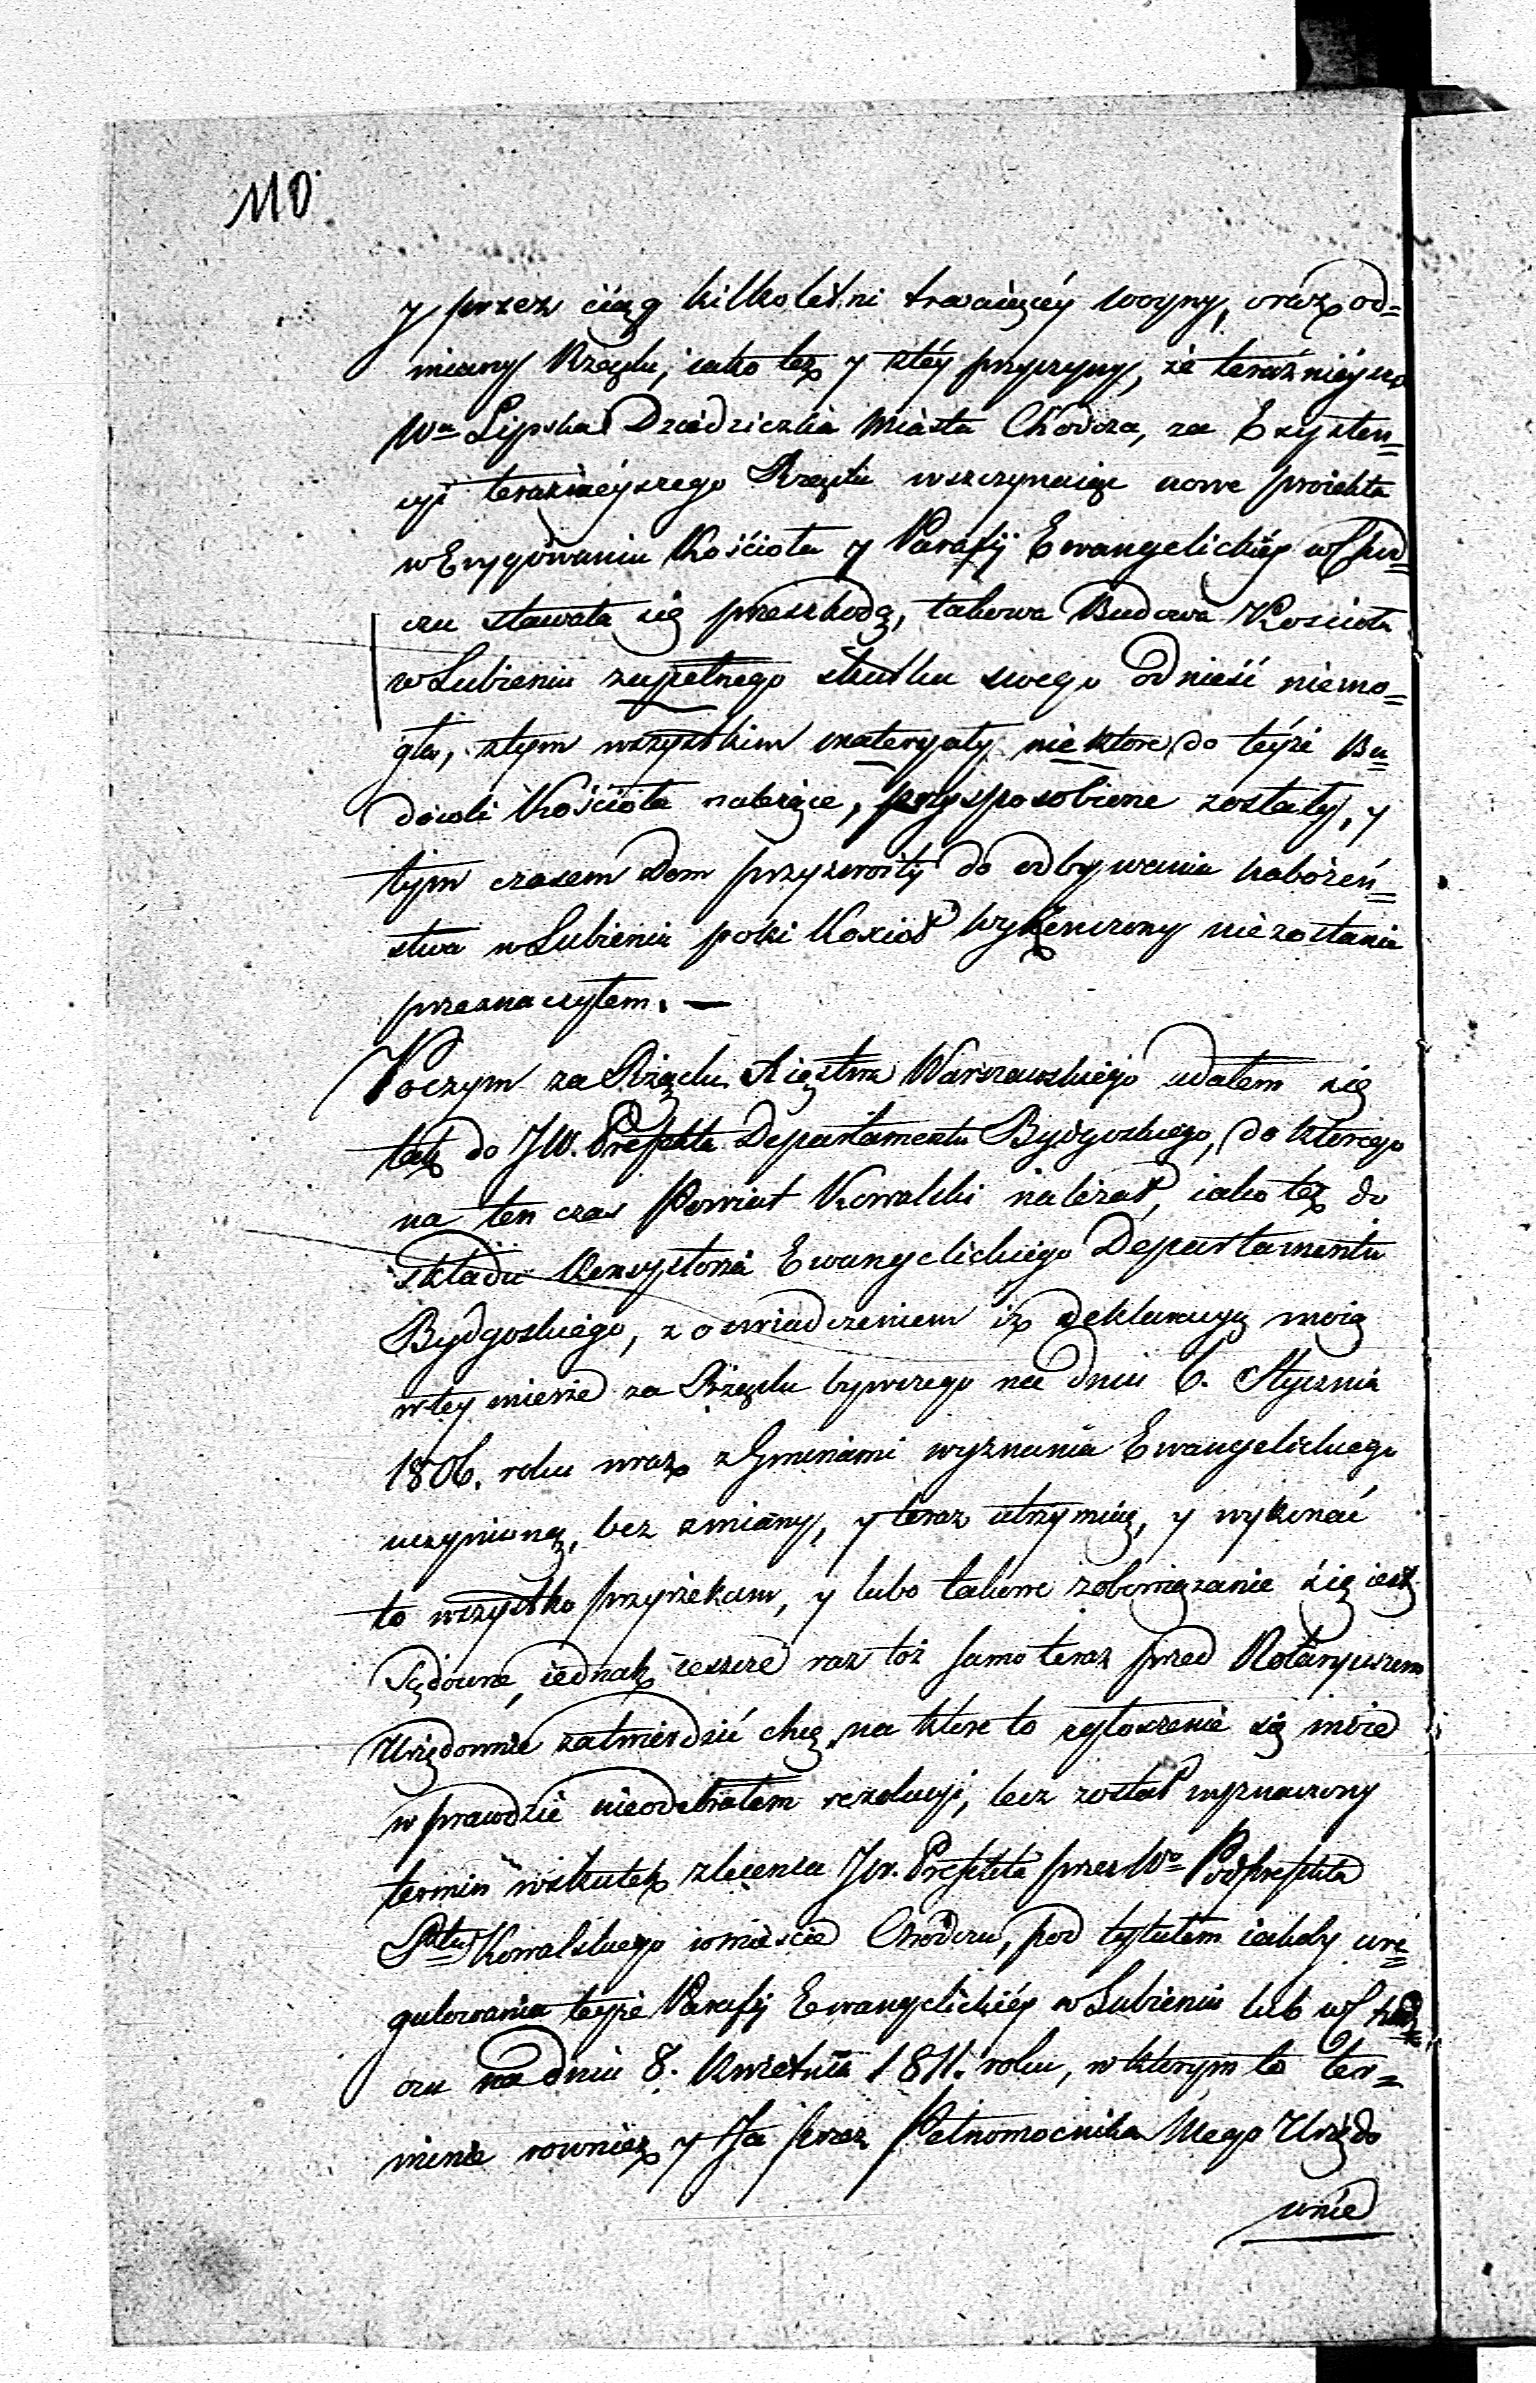 110.
y przez ciąg kilkoletni trwaiącéy woyny, oraz od=
miany Rządu, iako też y ztéy przyczyny, że teraźnieysza
Wa Lipska Dziedziczka Miasta Chodcza, za Exysten=
cyi teraźnieyszego Rządu wszczynaiąc nowe proiekta
w Erygowaniu Kościoła y Parafij Ewangelickiéy w Chod=
czu stawała się przeszkodą, takowa Budowa Kościoła
w Lubieniu zupełnego skutku swego odnieść niemo=
gła, ztym wszystkim materyały niektore do teyże Bu=
dowli Kościoła należące, przysposobione zostały, y
tym czasem Dom przyzwoity do odbywania nabożeń=
stwa w Lubieniu poki Koscioł wykończony niezostanie
przeznaczyłem. —
Poczym za Rządu Xięstwa Warszawskiego udałem się
tak do JW. Prefekta Departamentu Bydgoskiego, do ktorego
na ten czas Powiat Kowalski należał, iako też do
składu Konsystorza Ewangelickiego Departamentu
Bydgoskiego, z oswiadczeniem iż deklaracyą moią
w tey mierze za Rządu bywszego na dniu 6. Stycznia
1806. roku wraz z Gminami wyznania Ewangelickiego
uczynioną, bez zmiany, y teraz utrzymuię, y wykonać
to wszystko przyrzekam, y lubo takowe zobowiązanie się iest
Sądowne, iednak ieszcze raz toż samo teraz przed Notaryuszem
Urzędownie zatwierdzić chcę, na ktore to zgłoszenie się moie
w prawdzie nieodebrałem rezolucyi, lecz został wyznaczony
termin w skutek zlecenia JW. Prefekta przez Wo Podprefekta
Pttu Kowalskiego w mieście Chodczu, pod tytułem iakoby ure=
gulowania teyże Parafij Ewangelickiéy w Lubieniu lub w Chod=
czu na dniu 8. Kwietnia 1811. roku, w ktorym to ter=
minie rownież y Ja przez Pełnomocnika Mego Urzędo
wnie